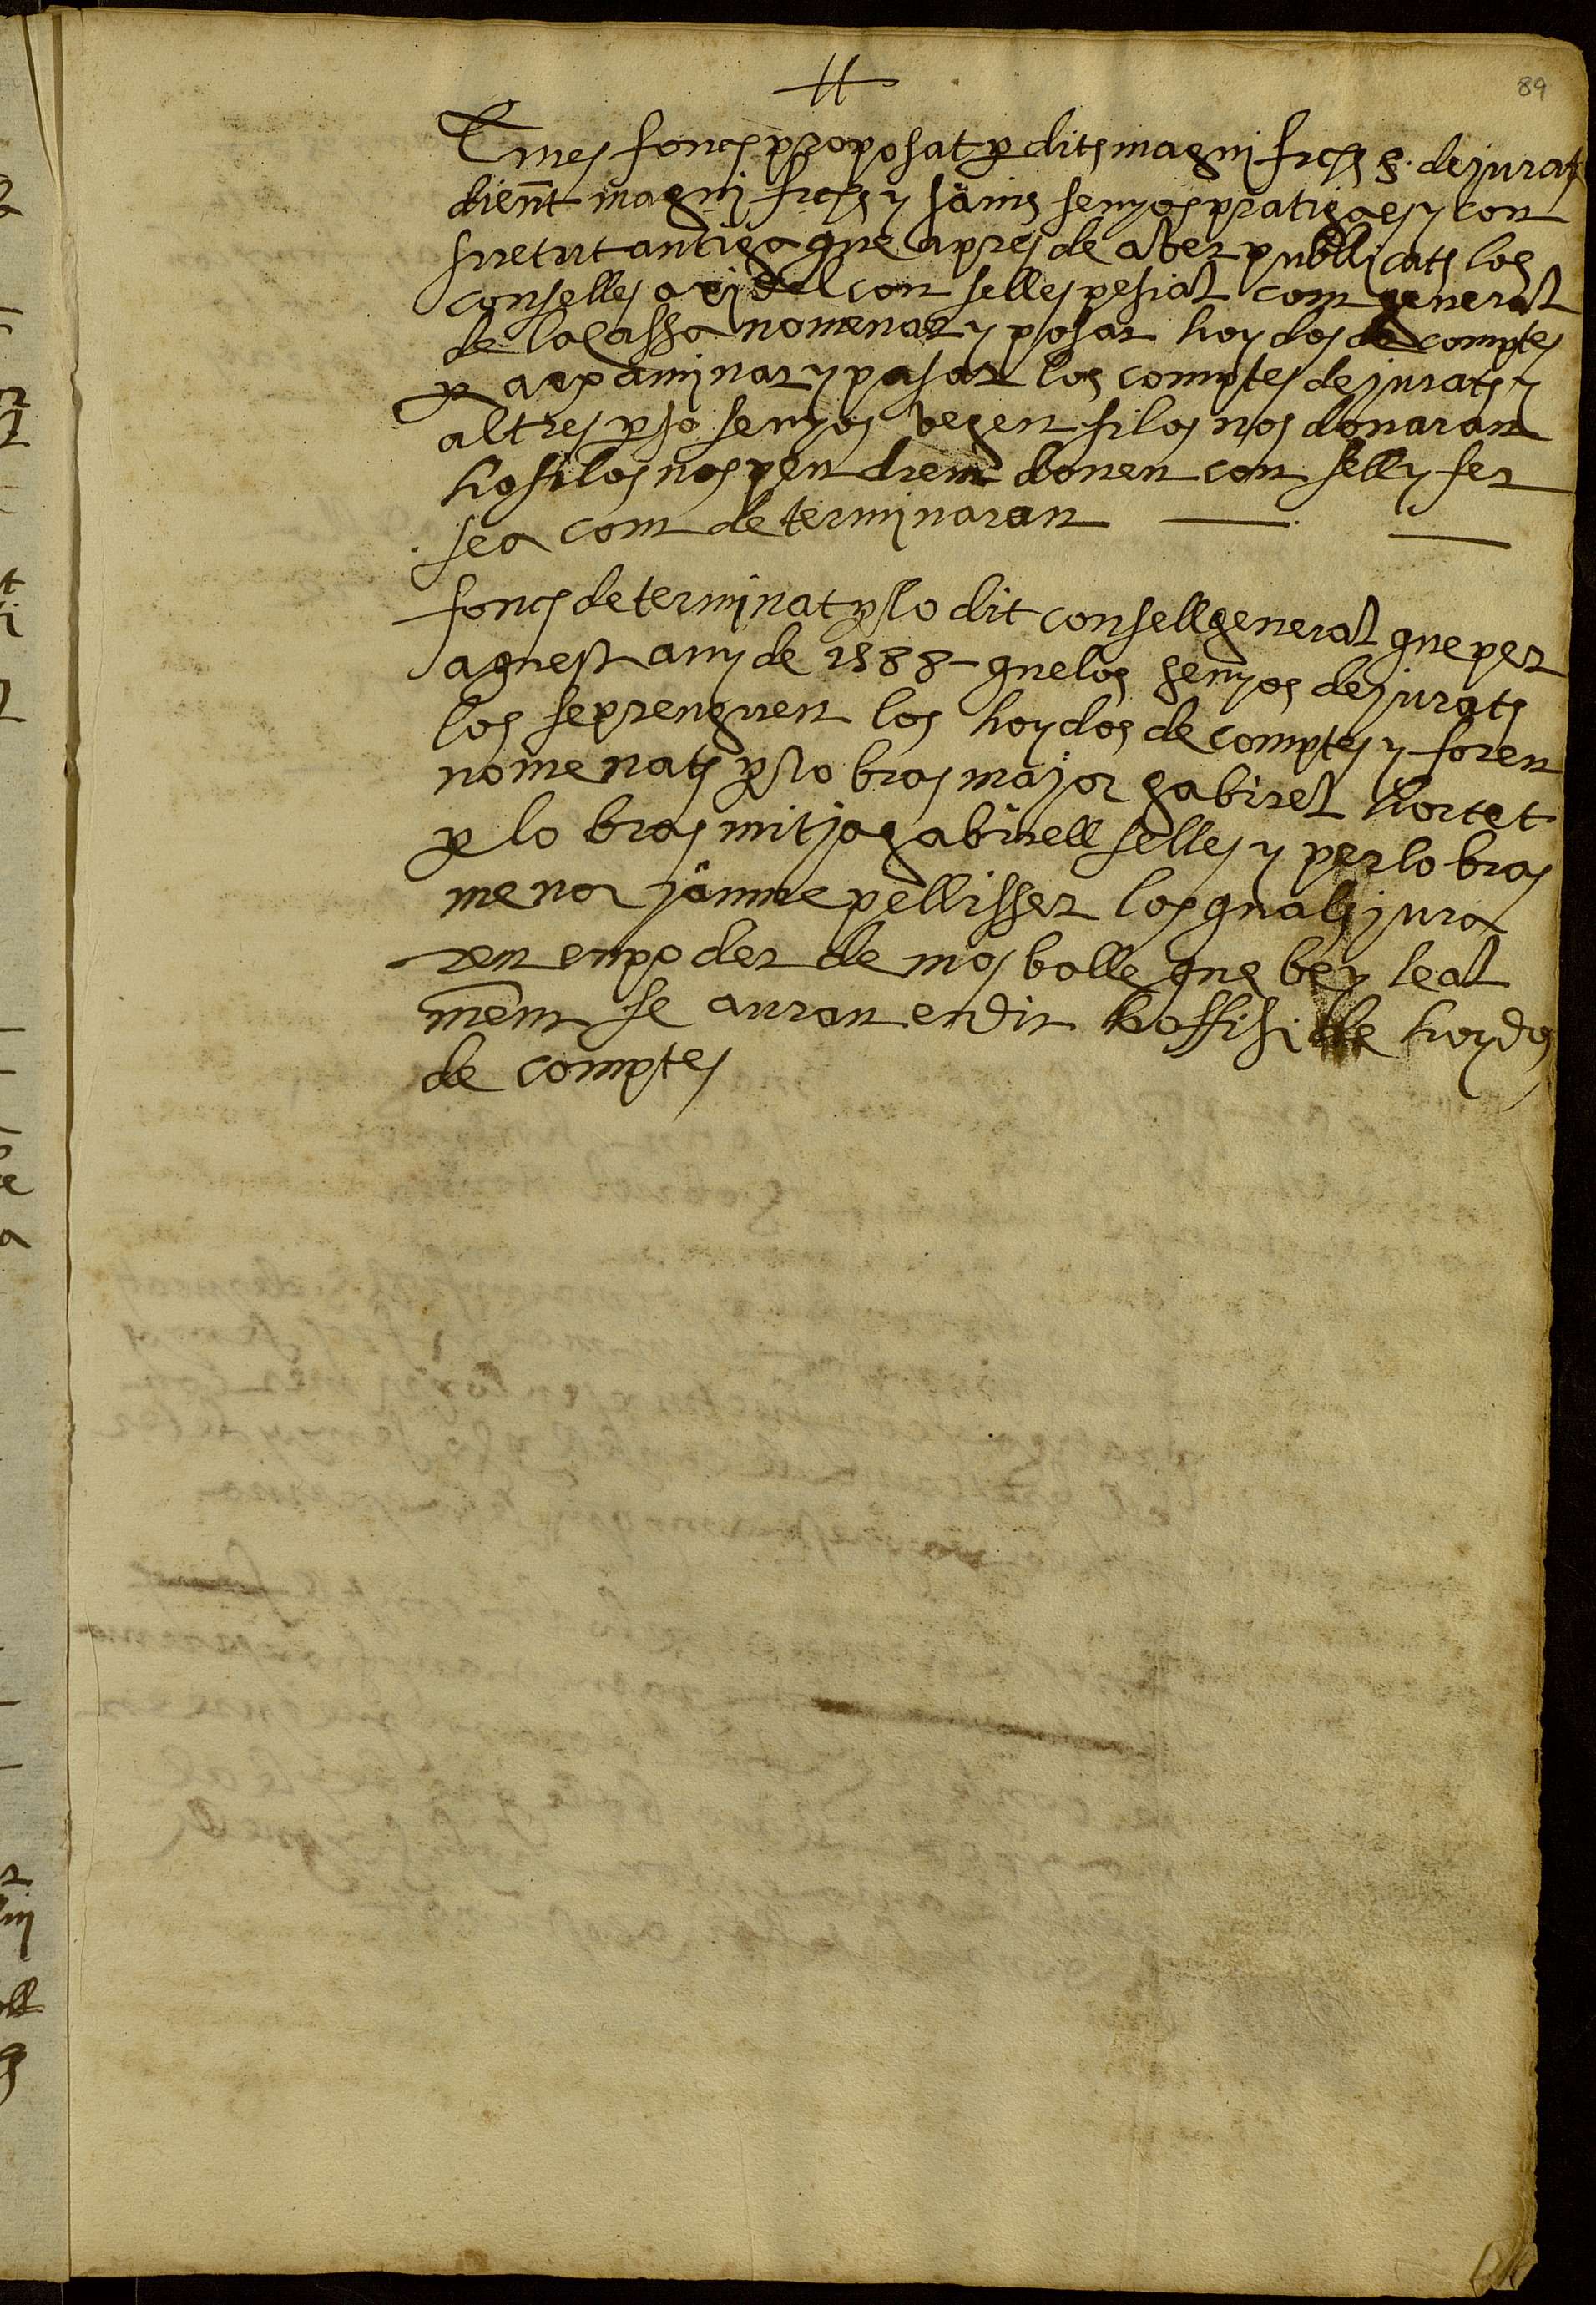 89
E mes fonch proposat per dits magnifichs s. de jurats
dient magnifichs y savis senyos pratiga es y con
suetut antiga que apres de aber publlicats los
conselles axi del con selles pesial com general
de la casa nomenar y posar hoydos de comptes
per a expaminar y pasar los comptes de jurats y
altres per so senyos vegen si los nos donaran
ho si los nos pendrem donen con sell y fer
sea com determinaran
fonch determinat per lo dit consell general que per
aquest any de 1588 que los senyos de jurats
los se prenguen los hoydos de comptes y foren
nomenats per lo bras major gabirel hortet
per lo bras mitja gabirell selles y per lo bras
menor jaume pellisser los quals jura
ren en poder de mos balle que be y leal
ment se auran en dit hoffisi de hoydos
de comptes